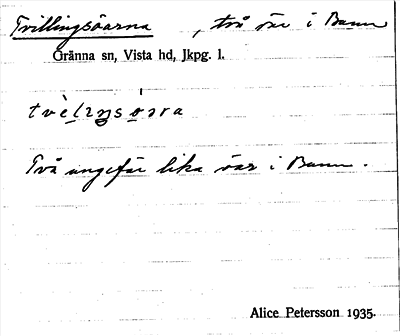 Tvillingsöarna, två öar i Bunn
Gränna sn, Vista hd, Jkpg. l.
Två ungefär lika öar i Bunn.
Alice Petersson 1935.